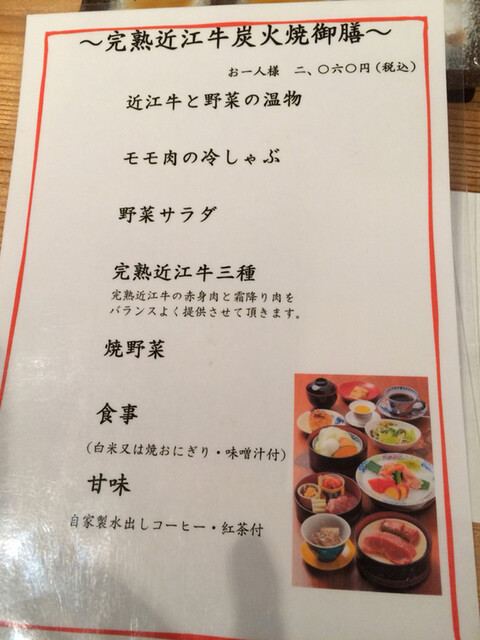 ～完熟近江牛炭火焼御膳～
お一人様 二、〇六〇円(税込)
近江牛と野菜の温物
モモ肉の冷しゃぶ
野菜サラダ
完熟近江牛三種
完熟近江牛の赤身肉と霜降り肉を
バランスよく提供させて頂きます。
焼野菜
食事
(白米又は焼おにぎり・味噌汁付)
甘味
自家製水出しコーヒー・紅茶付